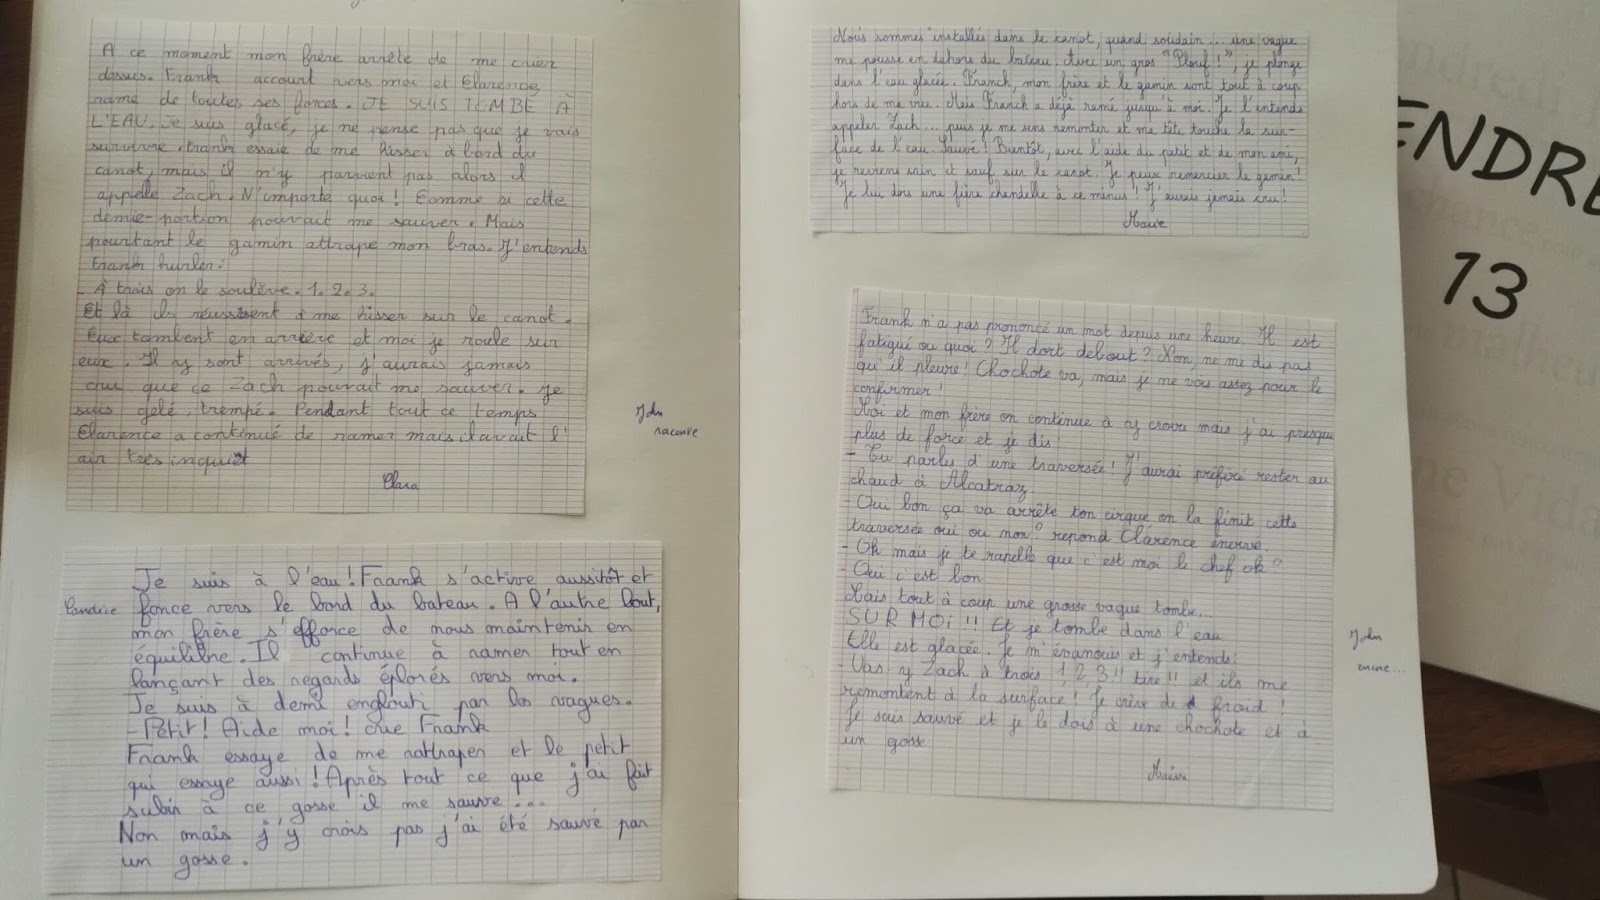 A ce moment mon frère arrête de me crier
dessus. Frank accourt vers moi et Clarence
rame de toutes ses forces. JE SUIS TOMBE À
L'EAU. Je suis glacé, je ne pense pas que je vais
survivre. Frank essaie de me hisser à bord du
canot, mais il n'y parvient pas alors il
appelle Zach. N'importe quoi ! Comme si cette
demie-portion pouvait me sauver. Mais
pourtant le gamin attrape mon bras. J'entends
Frank hurler :
- À trois on le soulève. 1. 2. 3.
Et là ils réussissent à me hisser sur le canot.
Eux tombent en arrière et moi je roule sur
eux. Il y sont arrivés, j'aurais jamais
cru que ce Zach pouvait me sauver. Je
suis gelé, trempé. Pendant tout ce temps
Clarence a continué de ramer mais il avait l'
air très inquiet
Clara
John
raconte
Candice
Je suis à l'eau ! Frank s'active aussitôt et
fonce vers le bord du bateau. A l'autre bout,
mon frère s'efforce de nous maintenir en
équilibre. Il continue à ramer tout en
lançant des regards éplorés vers moi.
Je suis à demi englouti par les vagues.
- Petit ! Aide moi ! crie Frank
Frank essaye de me rattraper et le petit
qui essaye aussi ! Après tout ce que j'ai fait
subir à ce gosse il me sauve ...
Non mais j'y crois pas j'ai été sauvé par
un gosse.
Nous sommes installés dans le canot, quand soudain ... une vague
me pousse en dehors du bateau. Avec un gros "Plouf !", je plonge
dans l'eau glacée. Franck, mon frère et le gamin sont tout à coup
hors de ma vue. Mais Franck a déjà ramé jusqu'à moi. Je l'entends
appeler Zach ... puis je me sens remonter et ma tête touche la sur-
face de l'eau. Sauvé ! Bientôt, avec l'aide du petit et de mon ami,
je reviens sain et sauf sur le canot. Je peux remercier le gamin !
Je lui dois une fière chandelle à ce minus ! J'aurais jamais cru !
Marie
Frank n'a pas prononcé un mot depuis une heure. Il est
fatigué ou quoi ? Il dort debout ? Non, ne me dis pas
qu'il pleure ! Chochote va, mais je me vois assez pour le
confirmer !
Moi et mon frère on continue à y croire mais j'ai presque
plus de force et je dis :
- Tu parles d'une traversée ! J'aurai préféré rester au
chaud à Alcatraz
- Oui bon ça va arrête ton cirque on la finit cette
traversée oui ou non ? repond Clarence énervé.
- Oh mais je te rapelle que c'est moi le chef ok ?
- Oui c'est bon
Mais tout à coup une grosse vague tombe ...
SUR MOI !! Et je tombe dans l'eau
Elle est glacée. Je m'évanouis et j'entends :
- Vas-y Zach à trois 1, 2, 3 !! tire !! et ils me
remontent à la surface ! Je crève de froid !
Je suis sauvé et je le dois à une chochote et à
un gosse
John
encore ...
ENDRE
13